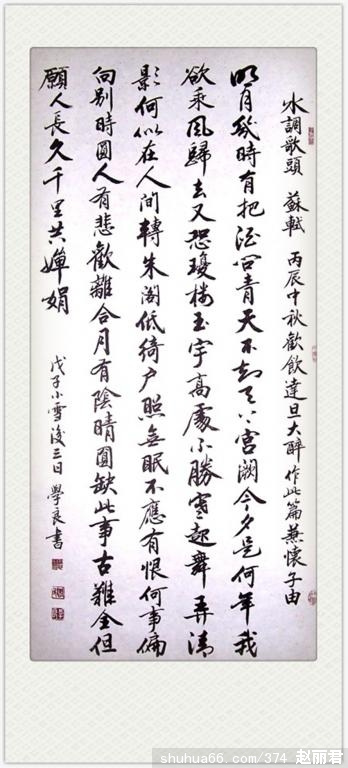 水調歌頭 蘇軾 丙辰中秋歡飲達旦大醉作此篇兼懷子由
明月幾時有把酒問青天不知天上宮闕今夕是何年我
欲乘風歸去又恐瓊樓玉宇高處不勝寒起舞弄清
影何似在人間轉朱閣低綺戶照無眠不應有恨何事偏
向別時圓人有悲歡離合月有陰晴圓缺此事古難全但
願人長久千里共嬋娟
戊子小雪後三日 學良書
shuhua66.com/374 赵丽君